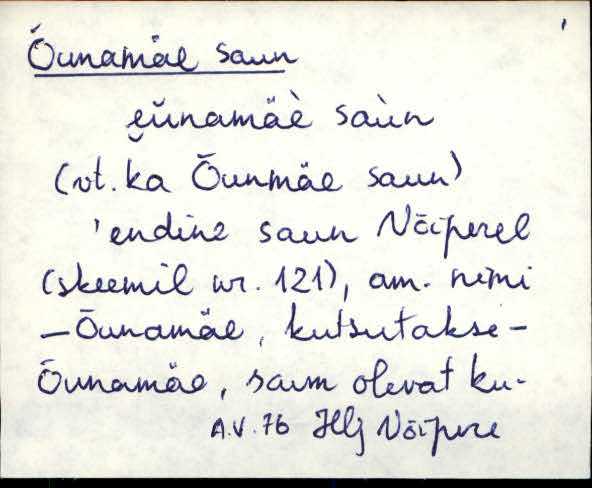 Õunamäe saun
e̮ŭnamäè saùn
(vt. ka Õunmäe saun)
'endine saun Nõiperel
(skeemil nr. 121), am. nimi
– Õunamäe, kutsutakse –
Õunamäe, saun olevat ku-
A.V. 76 Hlj Võipere